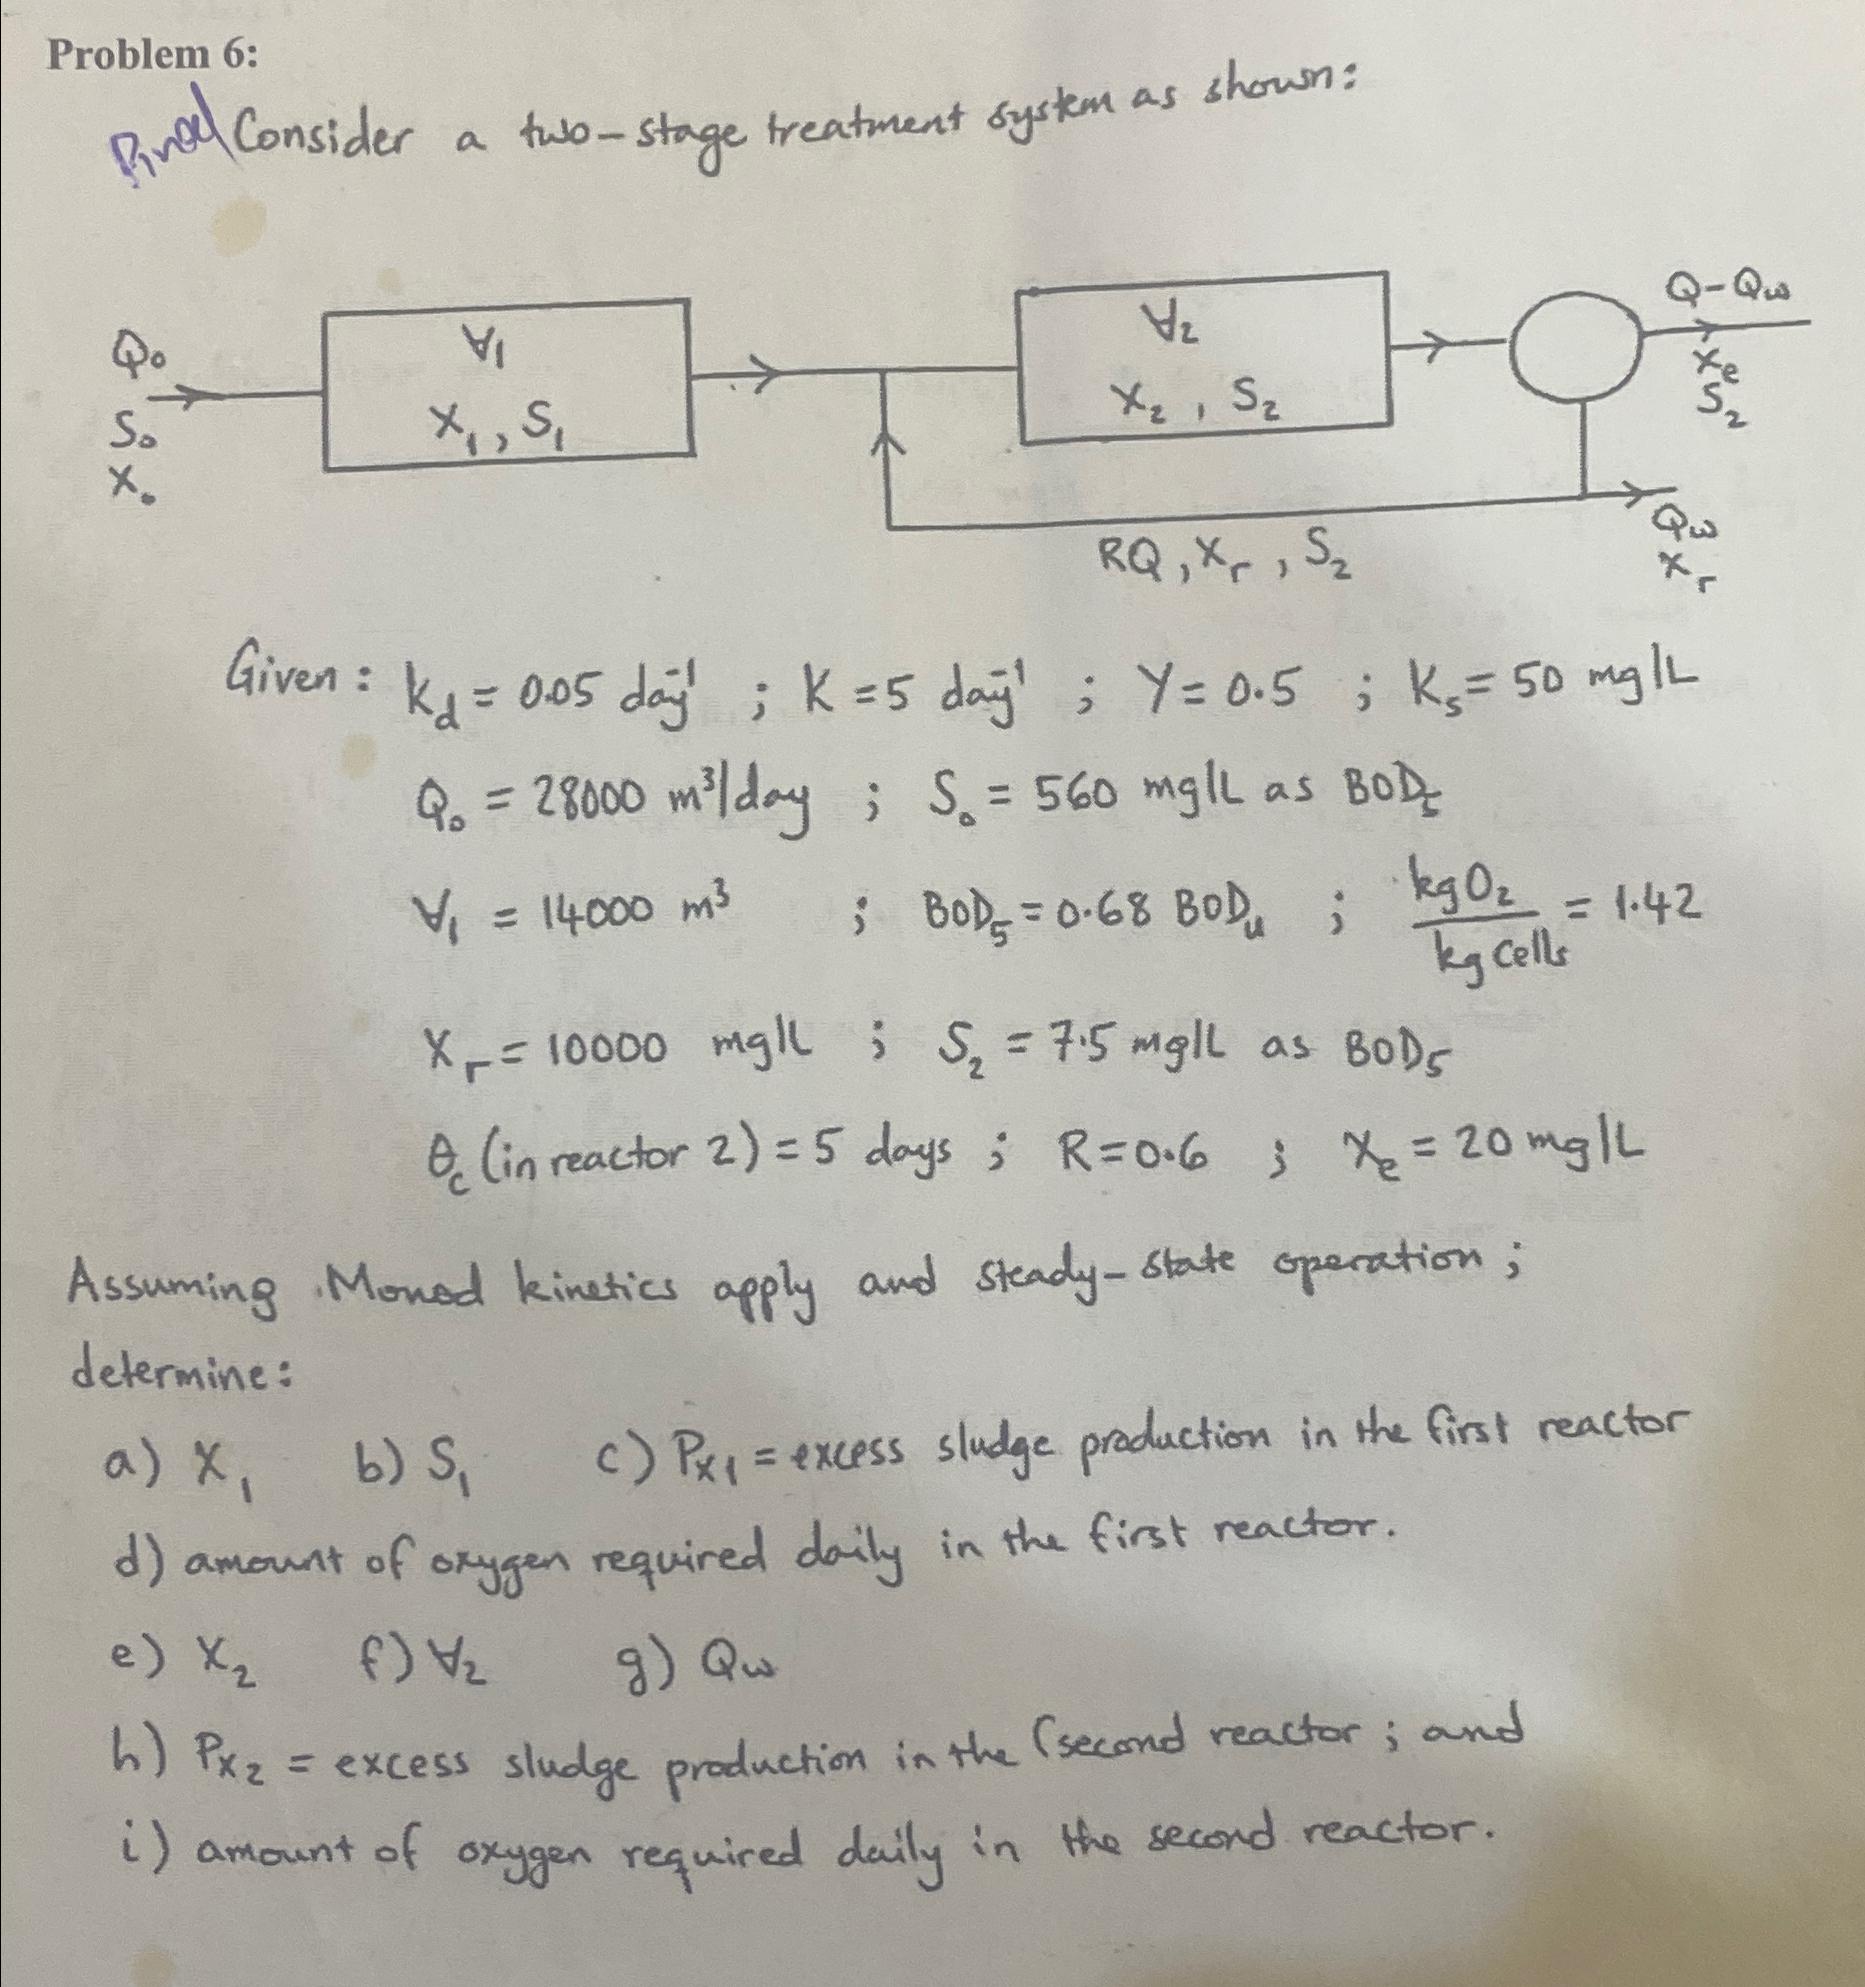 Problem 6:
Consider a two-stage treatment system as shown:
Q₀
S₀
X₀
∀₁
X₁, S₁
∀₂
X₂, S₂
Q-Qω
Xe
S₂
RQ, Xr, S₂
Qω
Xr
Given: kd = 0.05 day⁻¹ ; K = 5 day⁻¹ ; Y = 0.5 ; Ks = 50 mg/L
Q₀ = 28000 m³/day ; S₀ = 560 mg/L as BOD₅
∀₁ = 14000 m³ ; BOD₅ = 0.68 BODu ; kg O₂ / kg cells = 1.42
Xr = 10000 mg/L ; S₂ = 7.5 mg/L as BOD₅
θc (in reactor 2) = 5 days ; R = 0.6 ; Xe = 20 mg/L
Assuming Monod kinetics apply and steady-state operation;
determine:
a) X₁ b) S₁ c) Px₁ = excess sludge production in the first reactor
d) amount of oxygen required daily in the first reactor.
e) X₂ f) ∀₂ g) Qω
h) Px₂ = excess sludge production in the (second reactor ; and
i) amount of oxygen required daily in the second reactor.